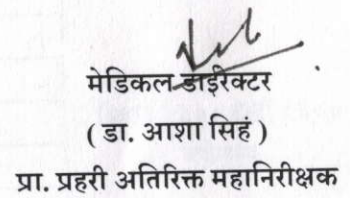 मेडिकल डाईरेक्टर
( डा. आशा सिहं )
प्रा. प्रहरी अतिरिक्त महानिरीक्षक